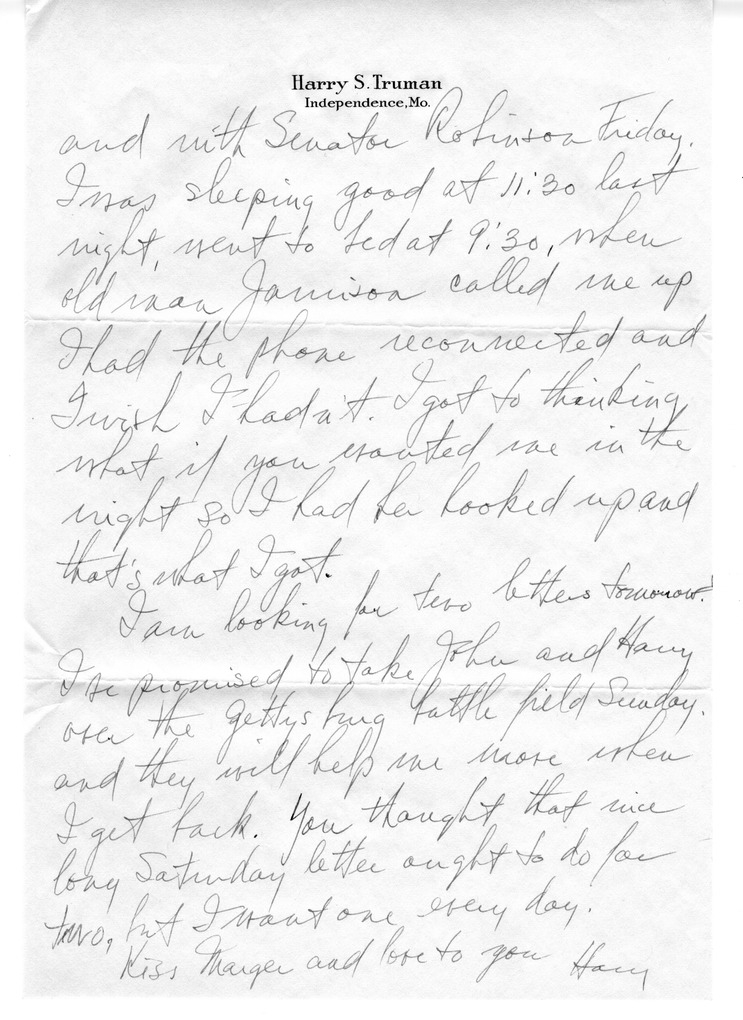 Harry S. Truman
Independence, Mo.
and with Senator Robinson Friday.
I was sleeping good at 11:30 last
night, went to bed at 9:30, when
old man Jamison called me up
I had the phone reconnected and
I wish I hadn't. I got to thinking
what if you wanted me in the
night so I had her hooked up and
that's what I got.
I am looking for two letters tomorrow.
I've promised to take John and Harry
over the Gettysburg battle field Sunday.
and they will help me move when
I get back. You thought that nice
long Saturday letter ought to do for
two, but I want one every day.
Kiss Margey and love to you Harry